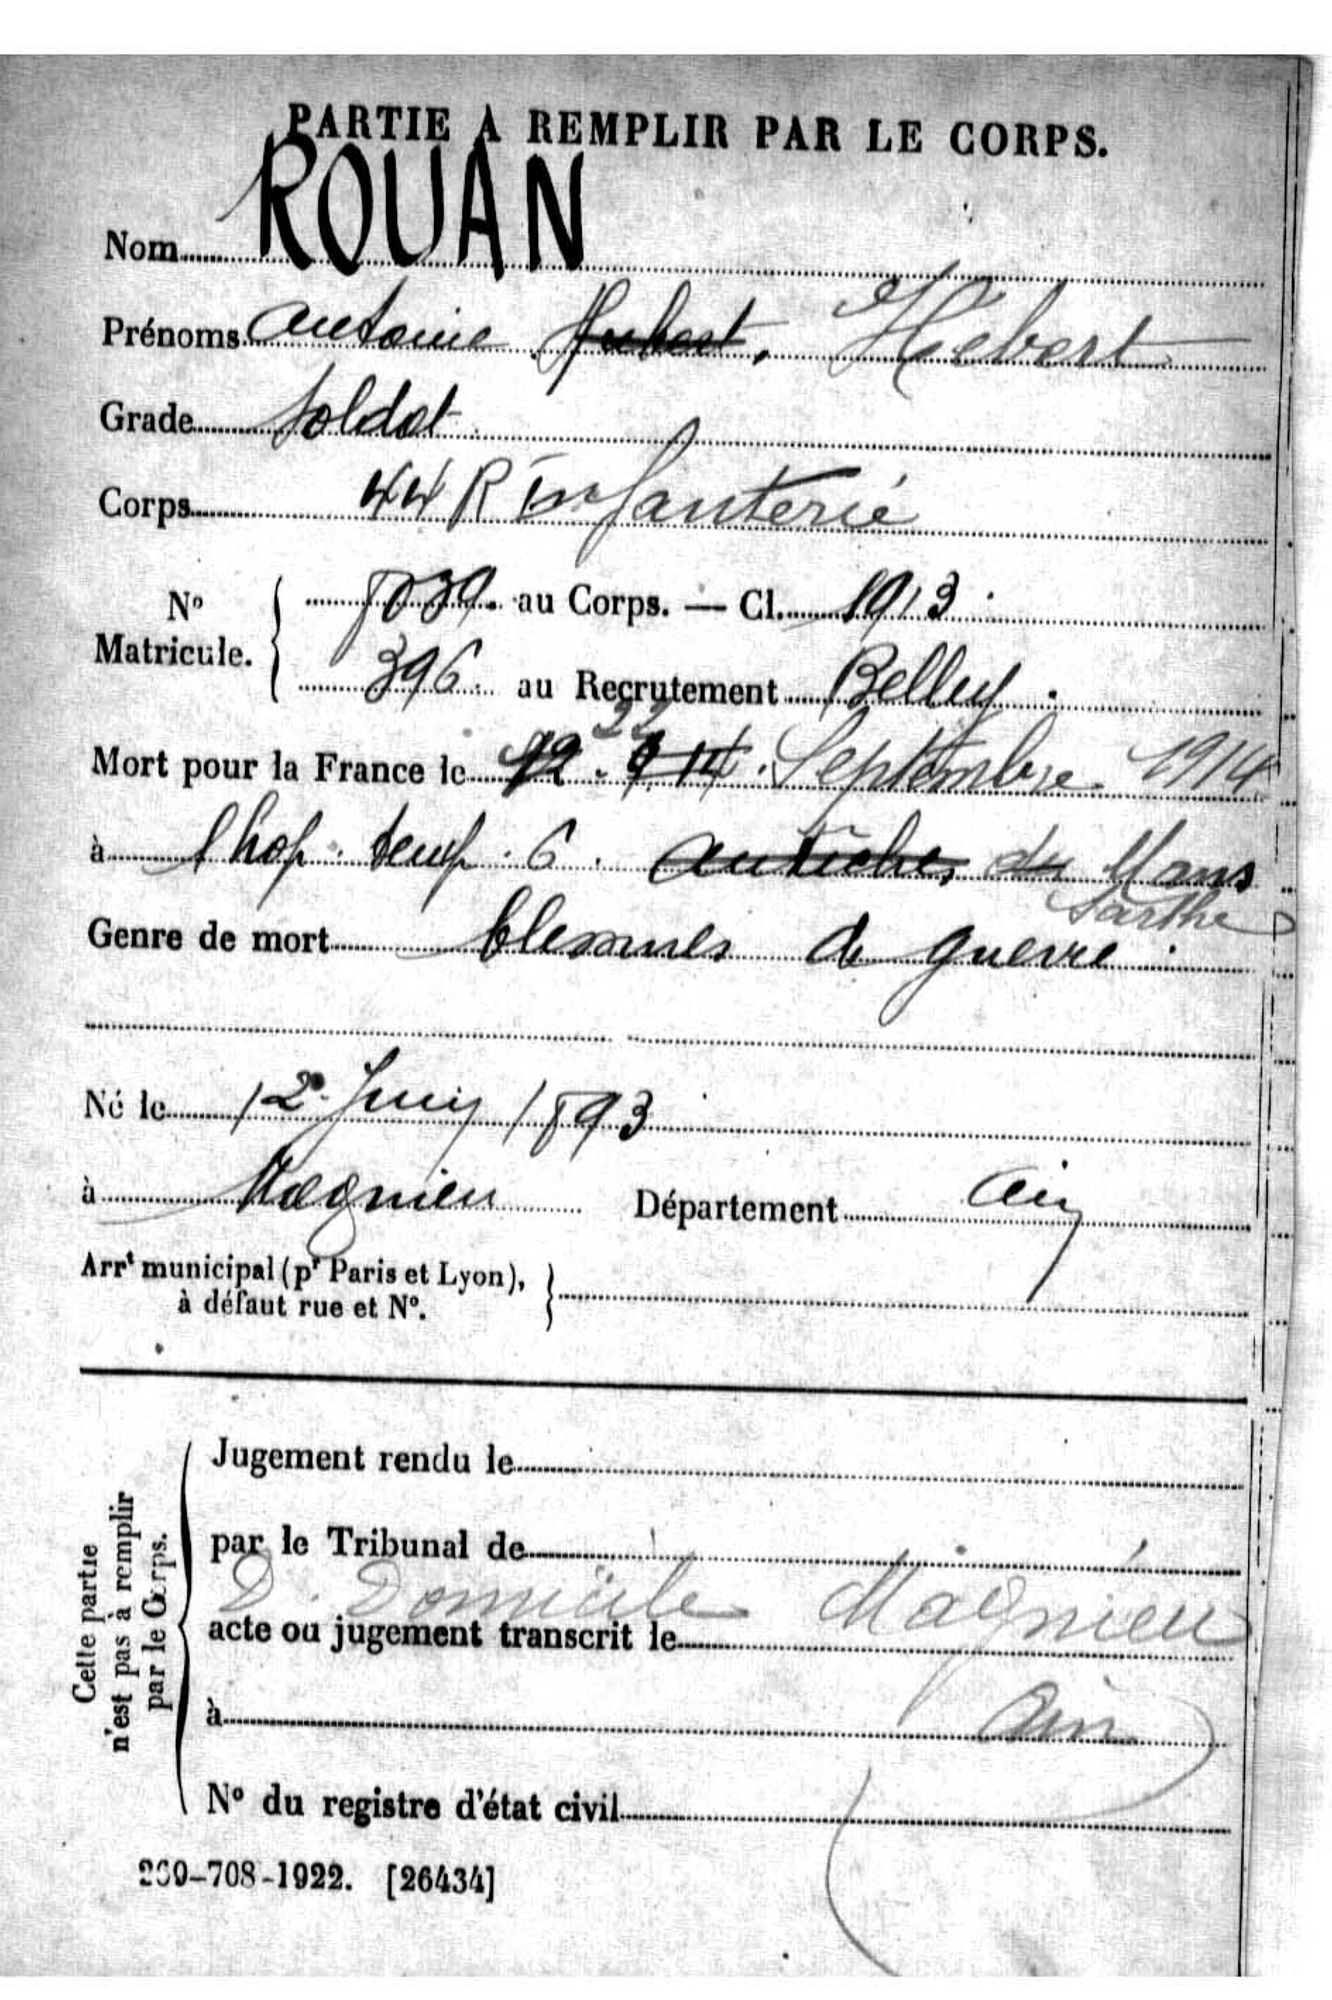 PARTIE A REMPLIR PAR LE CORPS.
Nom ROUAN
Prénoms Antoine Hubert, Hebert
Grade Soldat
Corps 44 R Infanterie
N° Matricule. 8039. au Corps. — Cl. 1913.
396. au Recrutement Belley.
22
Mort pour la France le 12. 9 14. Septembre 1914
à l hop. temp. 6. du Mans
Sarthe
Genre de mort blessures de guerre.
Né le 12 Juin 1893
à Magnieu Département Ain
Arrt municipal (pr Paris et Lyon),
à défaut rue et N°.
Cette partie
n'est pas à remplir
par le Corps.
Jugement rendu le
par le Tribunal de
D. Domicile Magnieu
acte ou jugement transcrit le
à Ain
N° du registre d'état civil
269-708-1922. [26434]